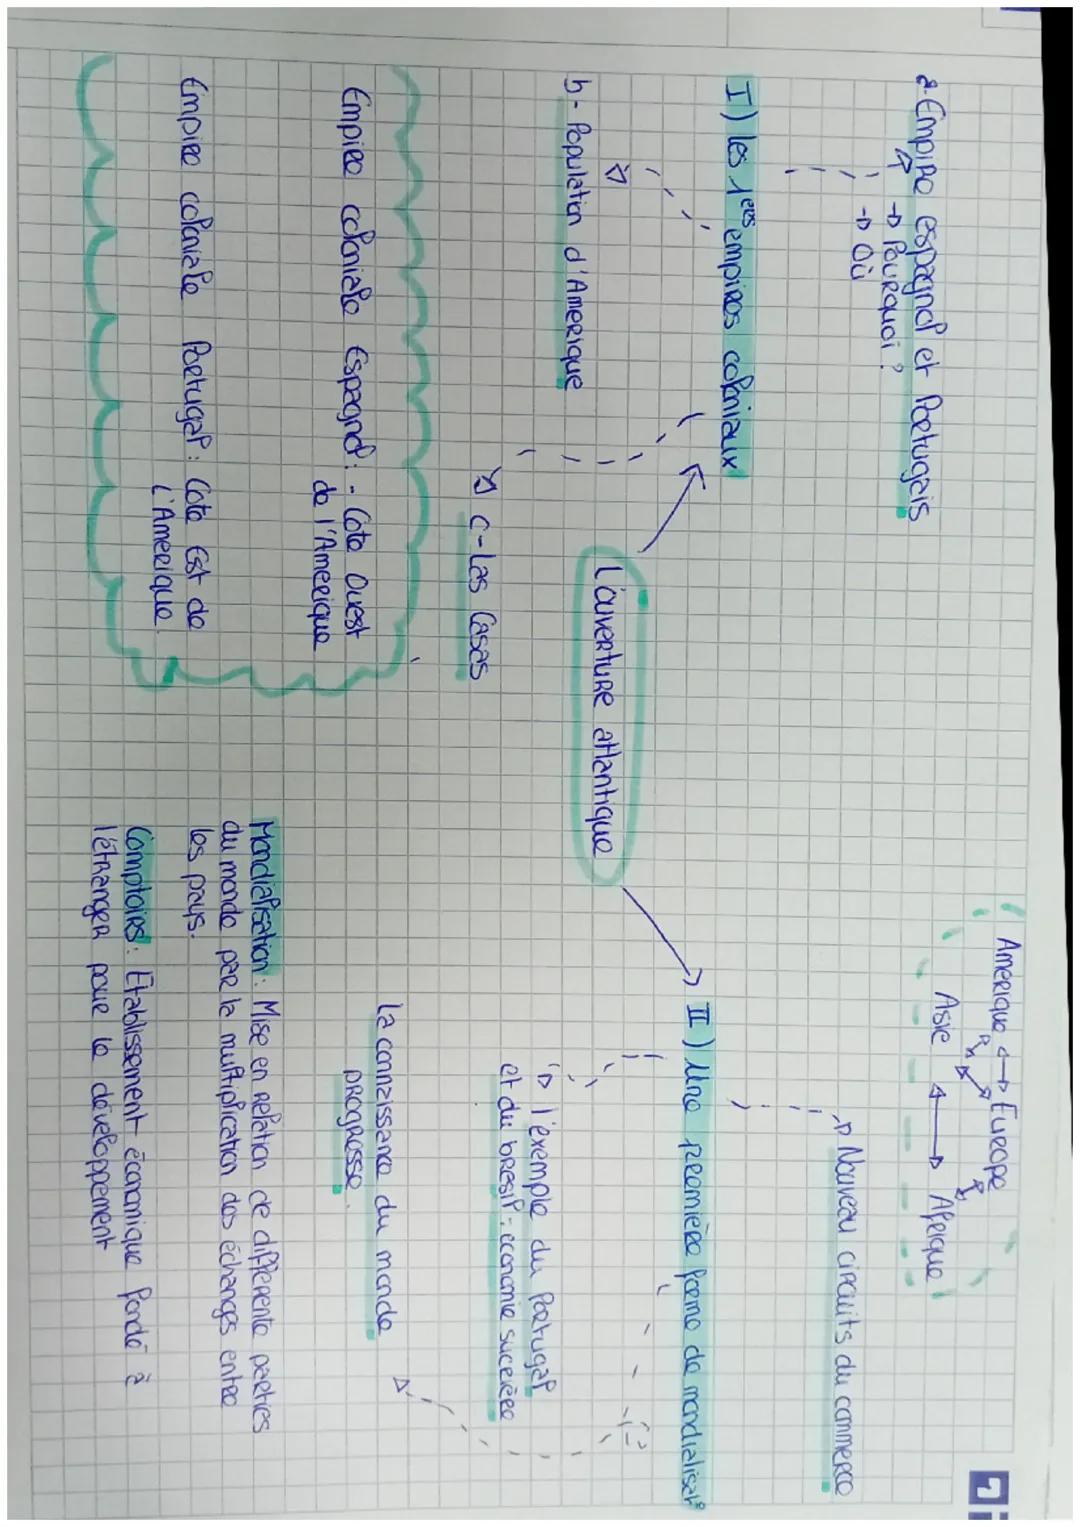 a-Empire espagnol et Portugais
→ Pourquoi ?
→ Où
I) les 1ers empires coloniaux
b- Population d'Amerique
c-Las Casas
L'ouverture atlantique
Empire coloniale Espagnol : - Cote Ouest
de l'Amerique
Empire coloniale Portugal : Cote Est de
l'Amerique.
Amerique ↔ Europe
Asie ↔ Afrique
Nouveau circuits du commerce
II) Une première forme de mondialisat°
l'exemple du Portugal
et du bresil : economie sucrière
La connaissance du monde
progresse.
Mondialisation : Mise en relation de differente parties
du monde par la multiplication des échanges entre
les pays.
Comptoirs : Etablissement économique fondé à
l'étranger pour le développement